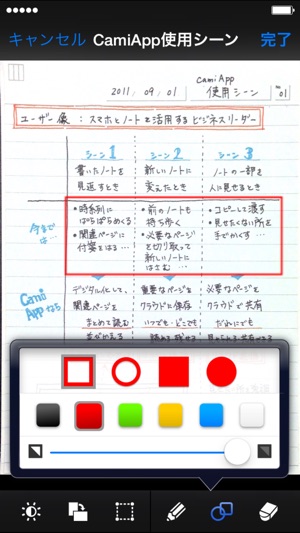 キャンセル CamiApp使用シーン 完了
camiApp
2011 . 09 . 01 使用シーン No. 01
ユーザー像 : スマホとノートを活用するビジネスリーダー
シーン1 シーン2 シーン3
書いたノートを 新しいノートに ノートの一部を
見返すとき 変えたとき 人に見せるとき
今までは…
・時系列に ・前のノートも ・コピーして渡す
ぱらぱらめくる 持ち歩く ・見せたくない所を
・関連ページに ・必要なページ 手でかくす…
付箋をはる… を切り取って
新しいノートに
はさむ…
CamiAppなら
デジタル化して、 重要なページを 必要なページを
関連ページを クラウドに保存 クラウドで共有
まとめて読む いつでも・どこでも だれにでも